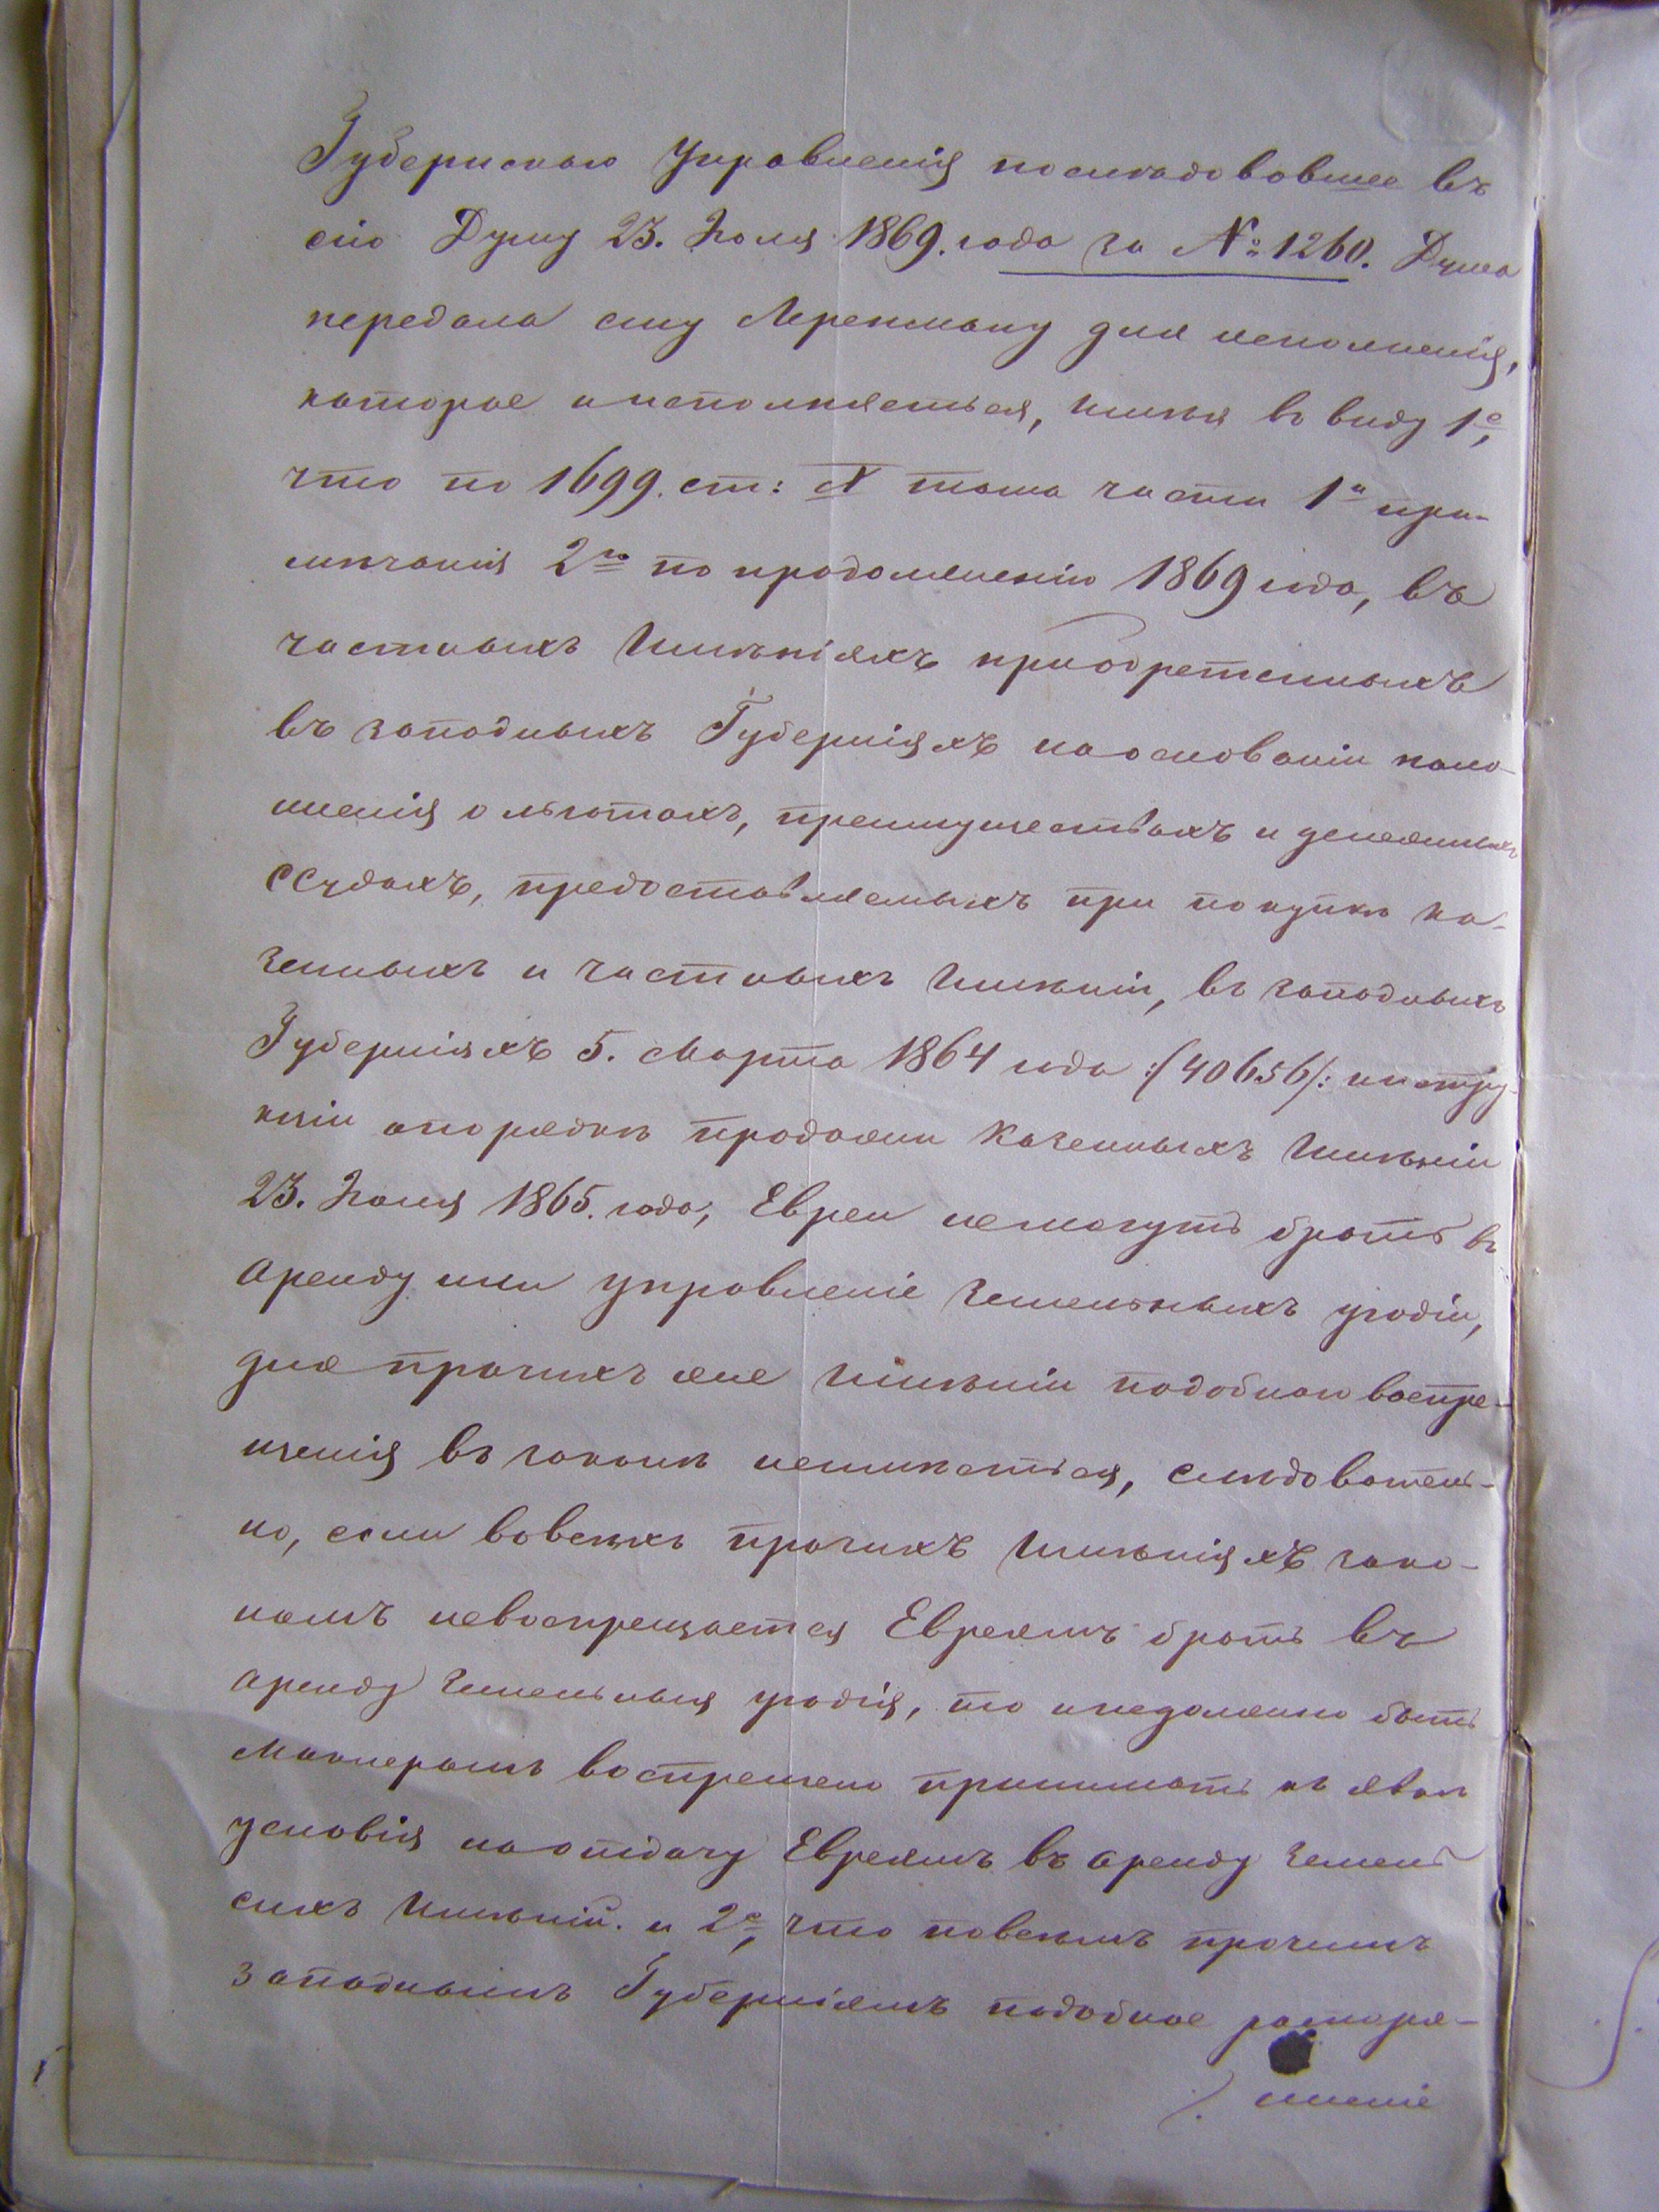 Губернскаго Управленія последовавшее въ
сію Думу 23. Іюля 1869. года за №: 1260. Дума
передала ему Лерексману для исполненія,
которое и исполняеться, имѣя въ виду 1е,
что по 1699. ст: X тома части 1й при-
мѣчанія 2го по продолженію 1869 года, въ
частныхъ Имѣніяхъ приобретенныхъ
въ западныхъ Губерніяхъ на основаніи поло-
женія о льготахъ, преимуществахъ и денежныхъ
ссудахъ, предоставляемыхъ при покупкѣ ка-
зенныхъ и частныхъ Имѣній, въ западныхъ
Губерніяхъ 5. Марта 1864 года :/40656/: инстру-
кціи о порядкѣ продажи Казенныхъ Имѣній
23. Іюля 1865. года, Евреи не могутъ брать въ
аренду или управленіе земельныхъ угодій,
для прочихъ же Имѣній подобнаго воспре-
щенія въ законѣ не имѣеться, следователь-
но, если во всѣхъ прочихъ Имѣніяхъ зако-
номъ невоспрещается Евреямъ брать въ
аренду земельныя угодія, то и недолжно быть
Маклерамъ воспрещено принимать къ явкѣ
условія на отдачу Евреямъ въ аренду земель
сихъ Имѣній. и 2е, что по всѣмъ прочимъ
западнымъ Губерніямъ подобное распоря-
./. женіе